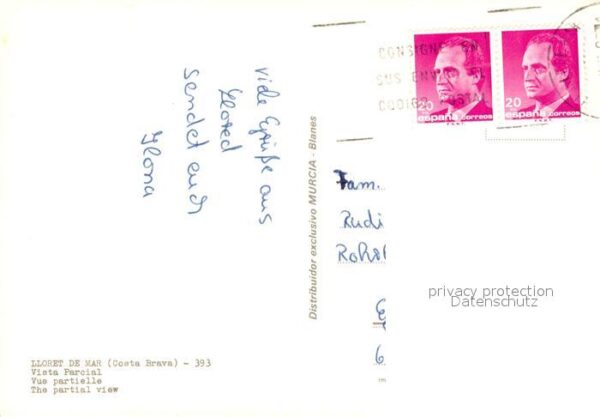 viele Grüße aus
Lloret
sendet euch
Ilona
Distribuidor exclusivo MURCIA - Blanes
CONSIGNE EN
SUS ENVIOS EL
CODIGO POSTAL
20
españa correos
20
españa correos
Fam.
Rudi
privacy protection
Datenschutz
6
LLORET DE MAR (Costa Brava) - 393
Vista Parcial
Vue partielle
The partial view